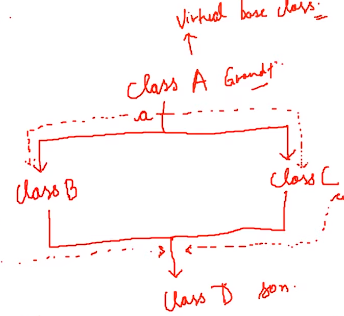 Virtual base class.
Class A
a
Class B
Class C
Class D son.